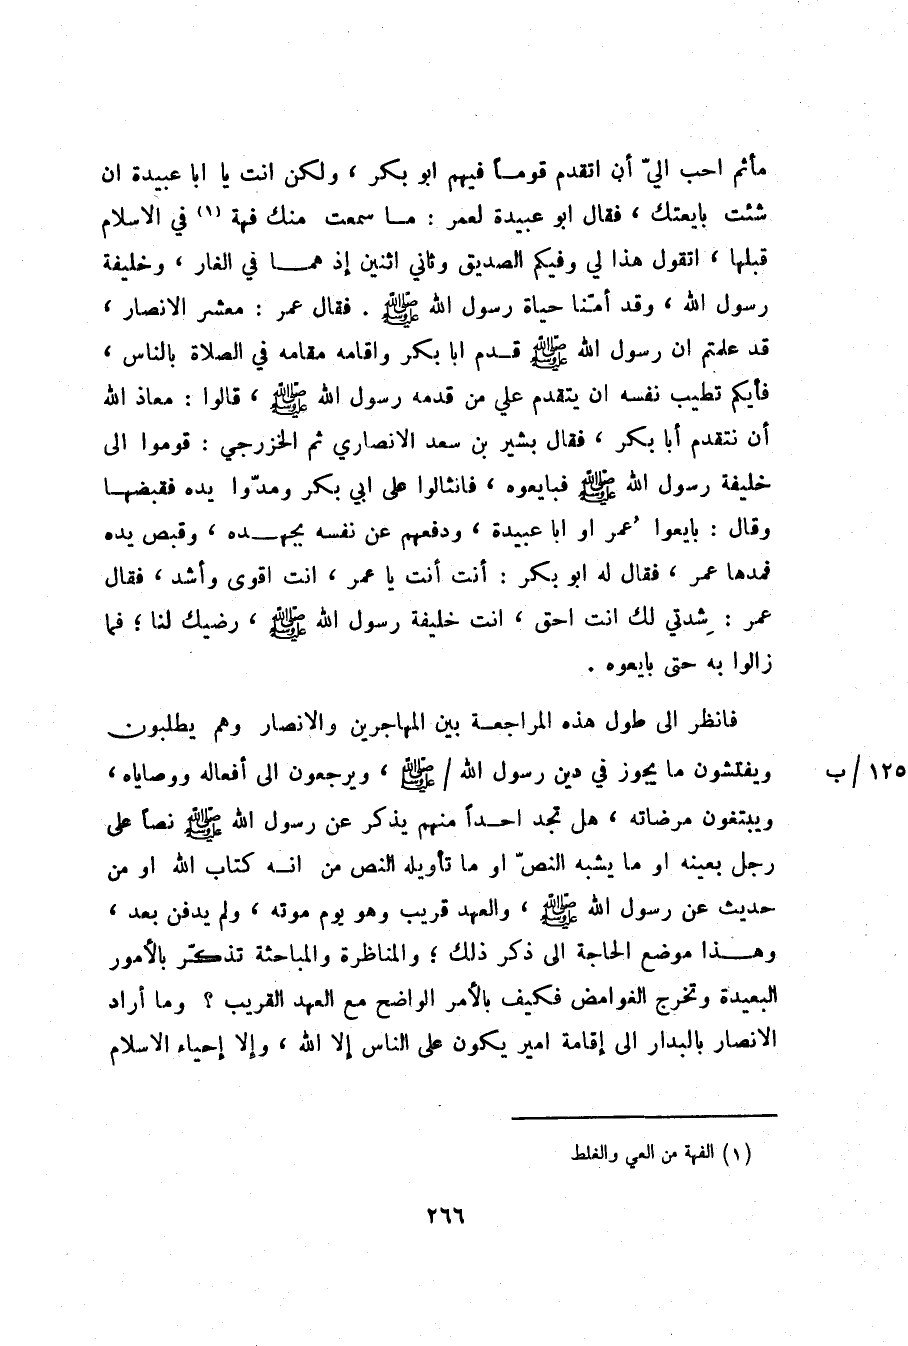 مأثم احب اليّ أن اتقدم قوماً فيهم ابو بكر ، ولكن انت يا ابا عبيدة ان
شئت بايعتك ، فقال ابو عبيدة لعمر : ما سمعت منك فهة (١) في الاسلام
قبلها ، اتقول هذا لي وفيكم الصديق وثاني اثنين إذ هما في الغار ، وخليفة
رسول الله ، وقد أمّنا حياة رسول الله ﷺ . فقال عمر : معشر الانصار ،
قد علمتم ان رسول الله ﷺ قدم ابا بكر واقامه مقامه في الصلاة بالناس ،
فأيكم تطيب نفسه ان يتقدم علي من قدمه رسول الله ﷺ ، قالوا : معاذ الله
أن نتقدم أبا بكر ، فقال بشير بن سعد الانصاري ثم الخزرجي : قوموا الى
خليفة رسول الله ﷺ فبايعوه ، فانثالوا على ابي بكر ومدّوا يده فقبضها
وقال : بايعوا عُمر او ابا عبيدة ، ودفعهم عن نفسه بجهده ، وقبص يده
فمدها عمر ، فقال له ابو بكر : أنت أنت يا عمر ، انت اقوى وأشد ، فقال
عمر : شِدتي لك انت احق ، انت خليفة رسول الله ﷺ ، رضيك لنا ؛ فما
زالوا به حتى بايعوه .
فانظر الى طول هذه المراجعة بين المهاجرين والانصار وهم يطلبون
ويفتشون ما يجوز في دين رسول الله / ﷺ ، ويرجعون الى أفعاله ووصاياه ،
١٢٥ / ب
ويبتغون مرضاته ، هل تجد احداً منهم يذكر عن رسول الله ﷺ نصاً على
رجل بعينه او ما يشبه النصّ او ما تأويله النص من انه كتاب الله او من
حديث عن رسول الله ﷺ ، والعهد قريب وهو يوم موته ، ولم يدفن بعد ،
وهذا موضع الحاجة الى ذكر ذلك ؛ والمناظرة والمباحثة تذكّر بالأمور
البعيدة وتخرج الغوامض فكيف بالأمر الواضح مع العهد القريب ؟ وما أراد
الانصار بالبدار الى إقامة امير يكون على الناس إلا الله ، وإلا إحياء الاسلام
(١) الفهة من العي والغلط
٢٦٦